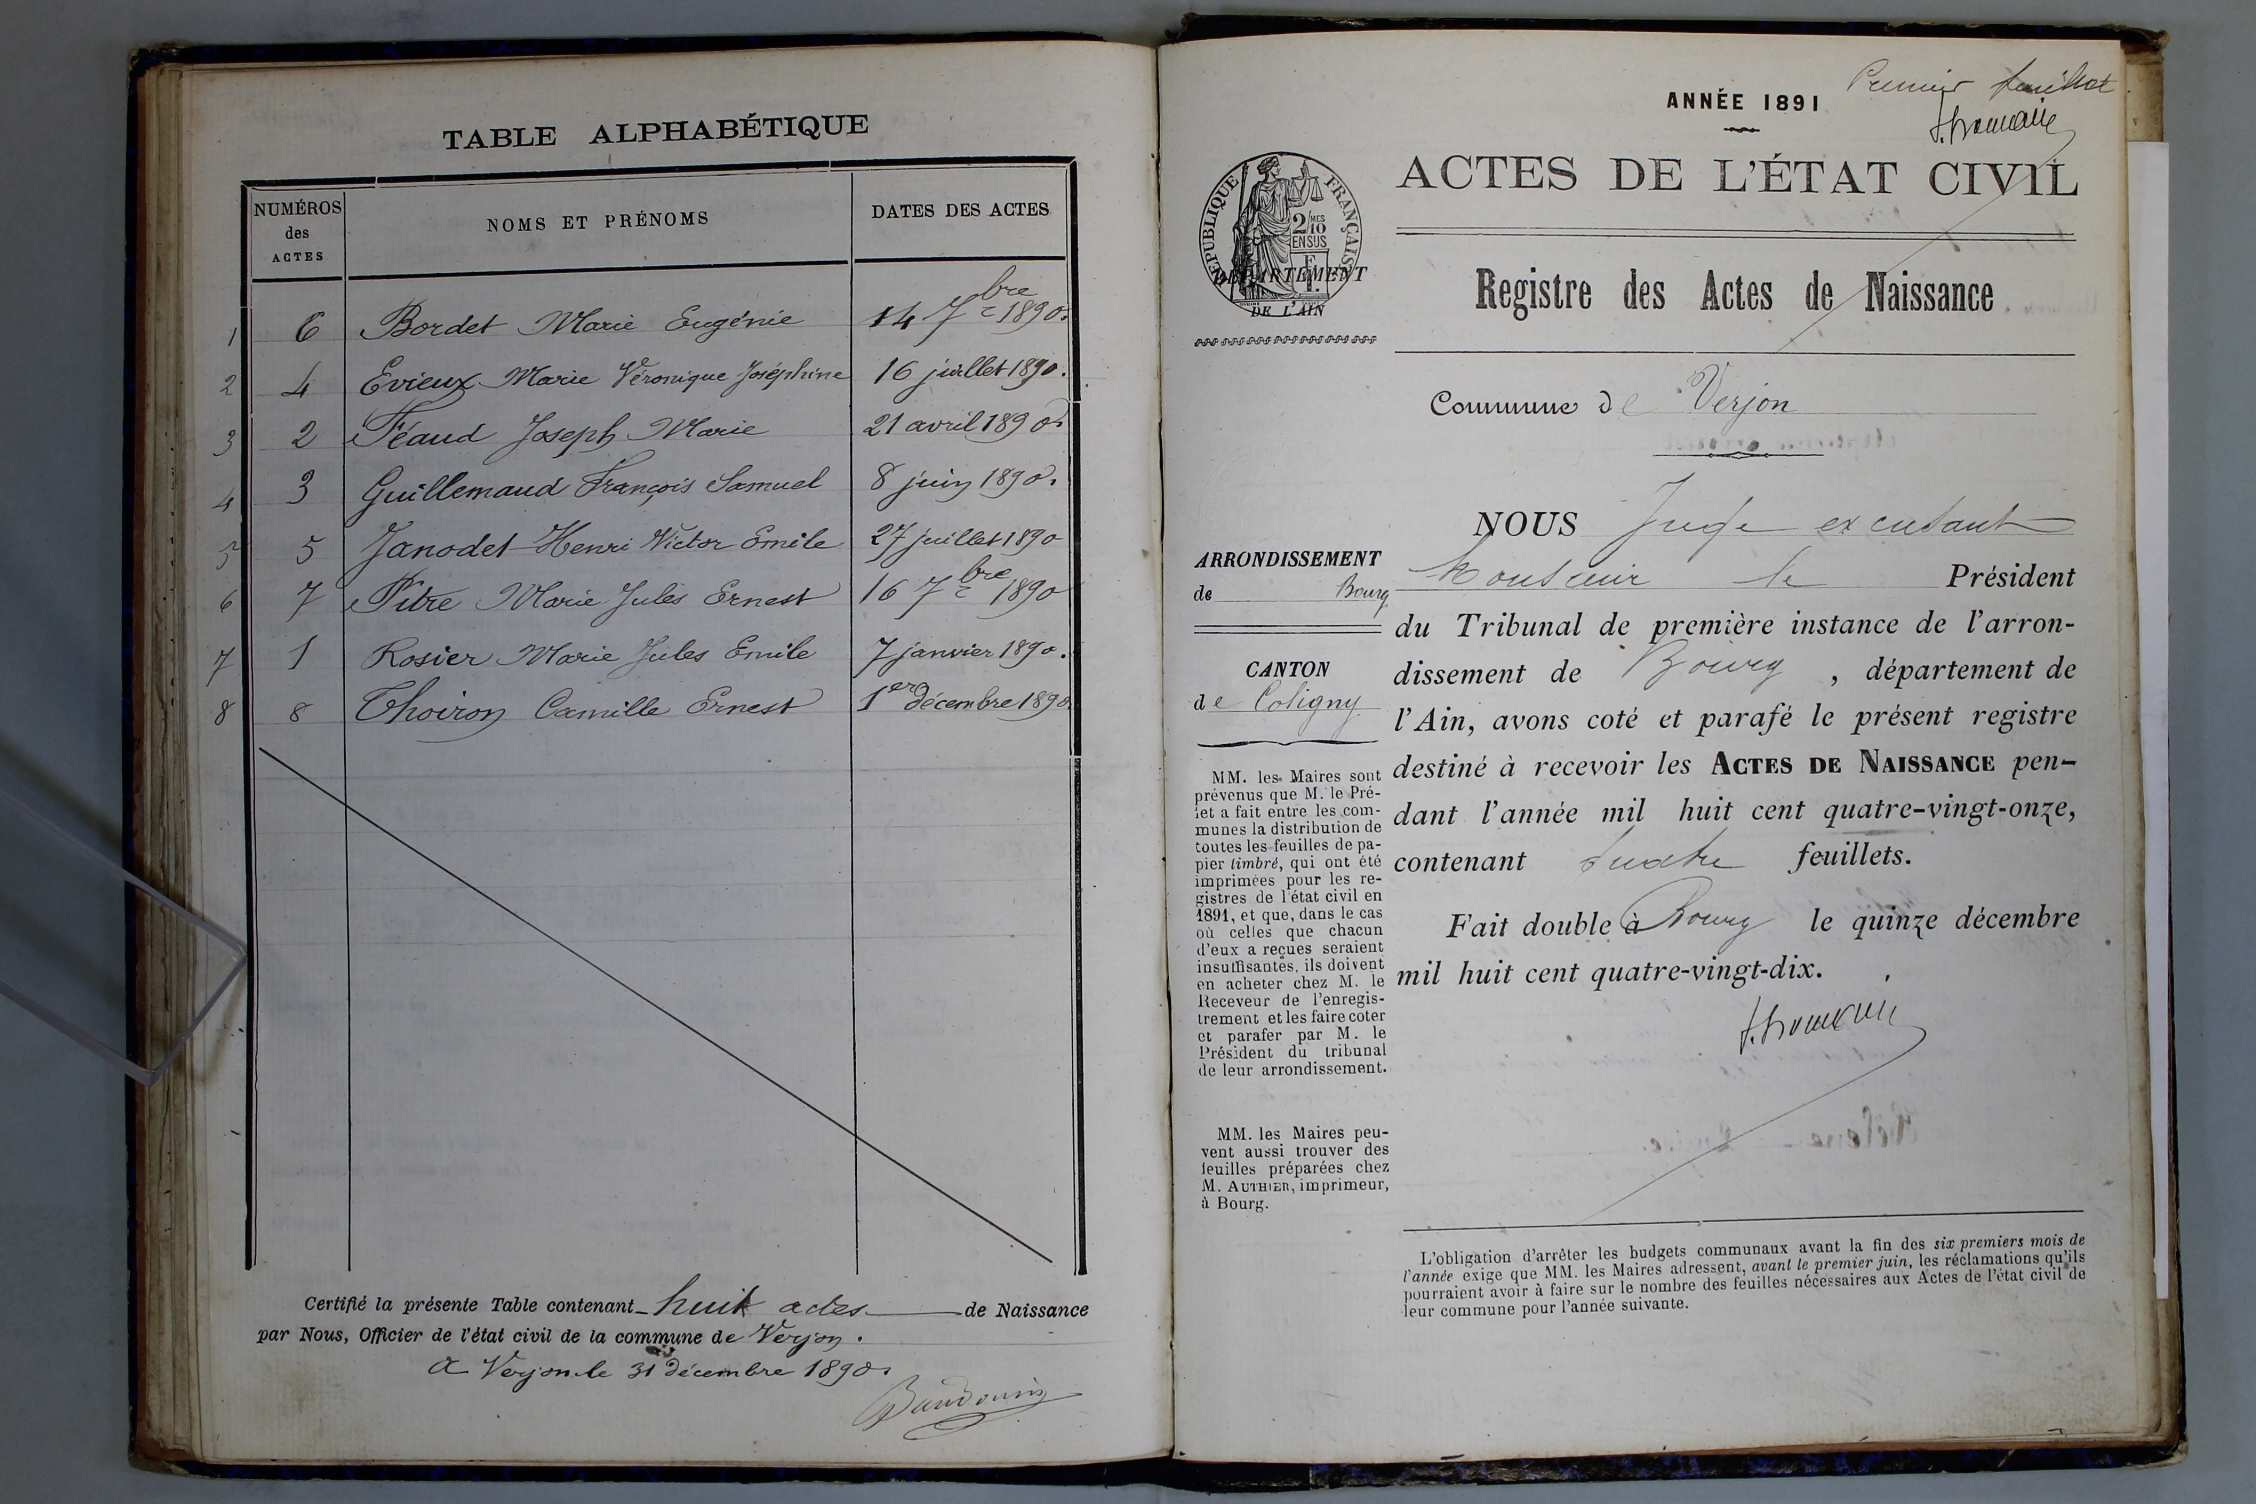 TABLE ALPHABÉTIQUE
NUMÉROS des ACTES
NOMS ET PRÉNOMS
DATES DES ACTES
1 6 Bordet Marie Eugénie 14 7bre 1890.
2 4 Evieux Marie Véronique Joséphine 16 juillet 1890.
3 2 Féaud Joseph Marie 21 avril 1890.
4 3 Guillemaud François Samuel 8 juin 1890.
5 5 Janodet Henri Victor Emile 27 juillet 1890
6 7 Pitre Marie Jules Ernest 16 7bre 1890
7 1 Rosier Marie Jules Emile 7 janvier 1890.
8 8 Thoiron Camille Ernest 1er décembre 1890
Certifié la présente Table contenant huit actes de Naissance
par Nous, Officier de l'état civil de la commune de Verjon.
A Verjon le 31 décembre 1890.
Baudouin
Premier feuillet
ANNÉE 1891
ACTES DE L'ÉTAT CIVIL
RÉPUBLIQUE FRANÇAISE
2/10 MES
EN SUS
DÉPARTEMENT
DE L'AIN
Registre des Actes de Naissance
Commune de Verjon
ARRONDISSEMENT
de Bourg
CANTON
de Coligny
MM. les Maires sont
prévenus que M. le Pré-
fet a fait entre les com-
munes la distribution de
toutes les feuilles de pa-
pier timbré, qui ont été
imprimées pour les re-
gistres de l'état civil en
1891, et que, dans le cas
où celles que chacun
d'eux a reçues seraient
insuffisantes, ils doivent
en acheter chez M. le
Receveur de l'enregis-
trement et les faire coter
et parafer par M. le
Président du tribunal
de leur arrondissement.
MM. les Maires peu-
vent aussi trouver des
feuilles préparées chez
M. AUTHIER, imprimeur,
à Bourg.
NOUS Juge
Monsieur le Président
du Tribunal de première instance de l'arron-
dissement de Bourg, département de
l'Ain, avons coté et parafé le présent registre
destiné à recevoir les ACTES DE NAISSANCE pen-
dant l'année mil huit cent quatre-vingt-onze,
contenant quatre feuillets.
Fait double à Bourg le quinze décembre
mil huit cent quatre-vingt-dix.
L'obligation d'arrêter les budgets communaux avant la fin des six premiers mois de
l'année exige que MM. les Maires adressent, avant le premier juin, les réclamations qu'ils
pourraient avoir à faire sur le nombre des feuilles nécessaires aux Actes de l'état civil de
leur commune pour l'année suivante.